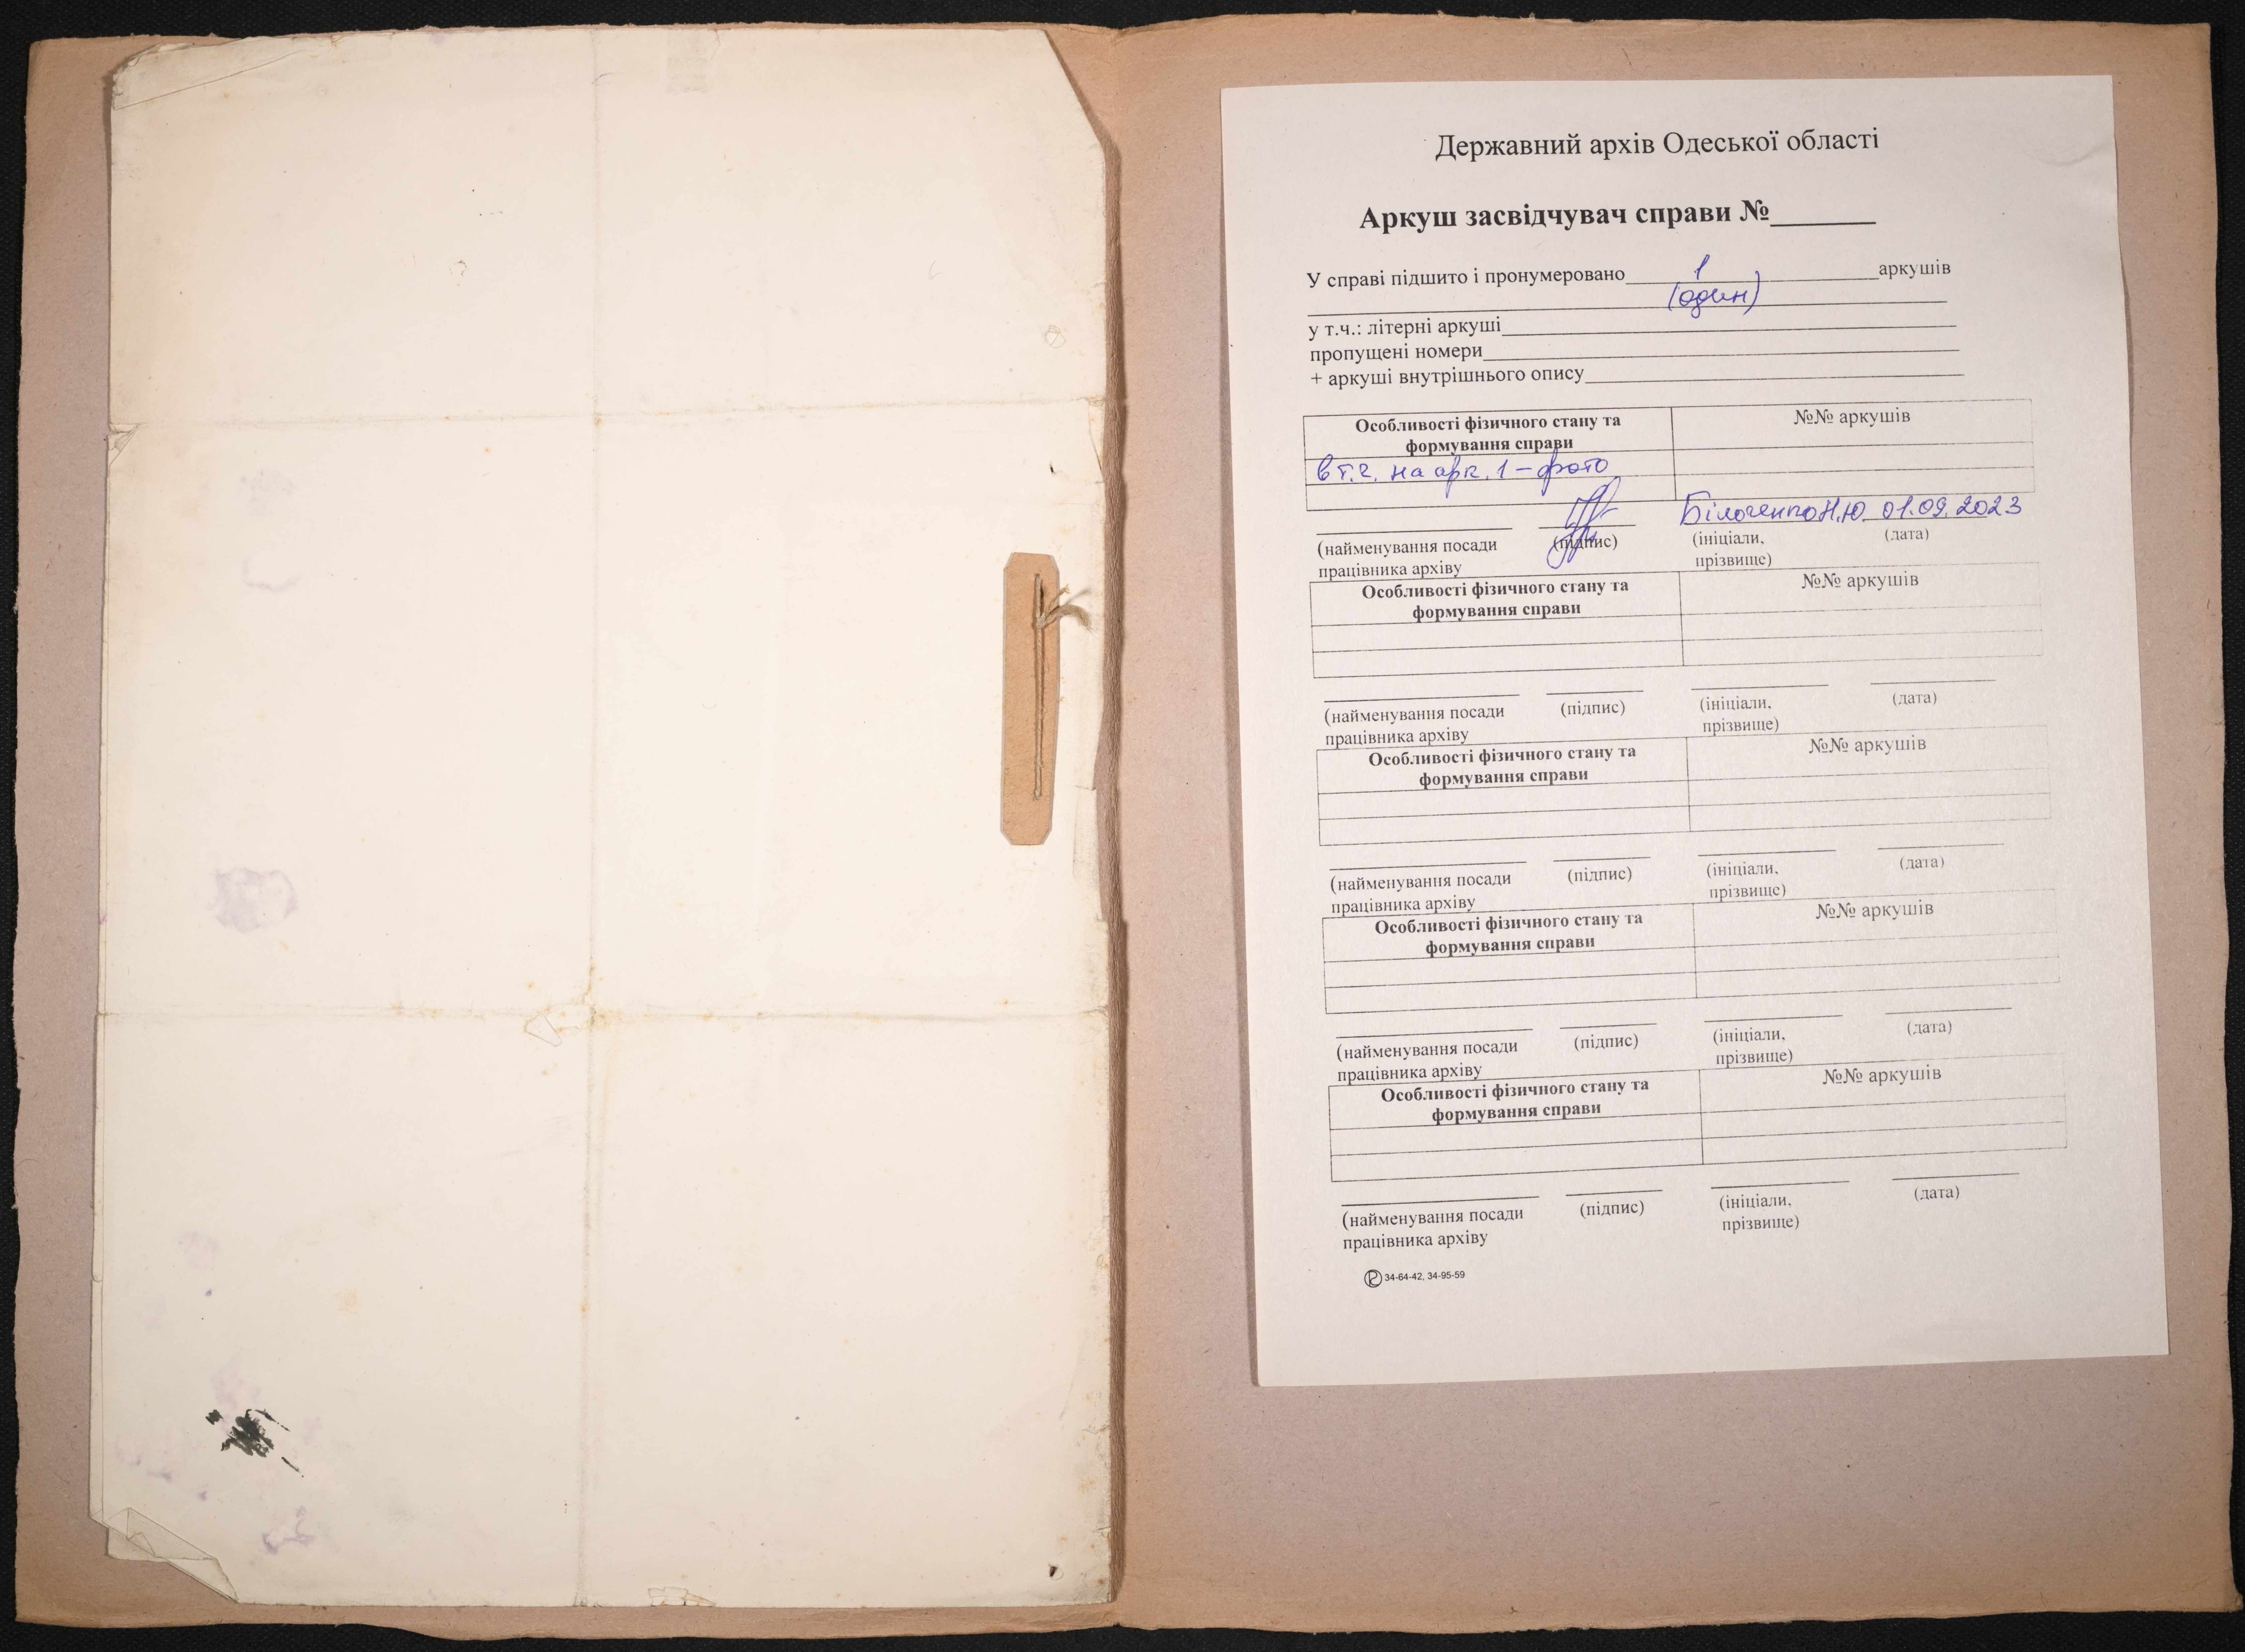 Державний архів Одеської області
Аркуш засвідчувач справи №______
У справі підшито і пронумеровано 1 аркушів
(один)
у т.ч.: літерні аркуші
пропущені номери
+ аркуші внутрішнього опису
Особливості фізичного стану та формування справи
№№ аркушів
в т.ч. на арк. 1 – фото
Н.Ю. 01.09.2023
(найменування посади працівника архіву
(підпис)
(ініціали, прізвище)
(дата)
Особливості фізичного стану та формування справи
№№ аркушів
(найменування посади працівника архіву
(підпис)
(ініціали, прізвище)
(дата)
Особливості фізичного стану та формування справи
№№ аркушів
(найменування посади працівника архіву
(підпис)
(ініціали, прізвище)
(дата)
Особливості фізичного стану та формування справи
№№ аркушів
(найменування посади працівника архіву
(підпис)
(ініціали, прізвище)
(дата)
Особливості фізичного стану та формування справи
№№ аркушів
(найменування посади працівника архіву
(підпис)
(ініціали, прізвище)
(дата)
34-64-42, 34-95-59